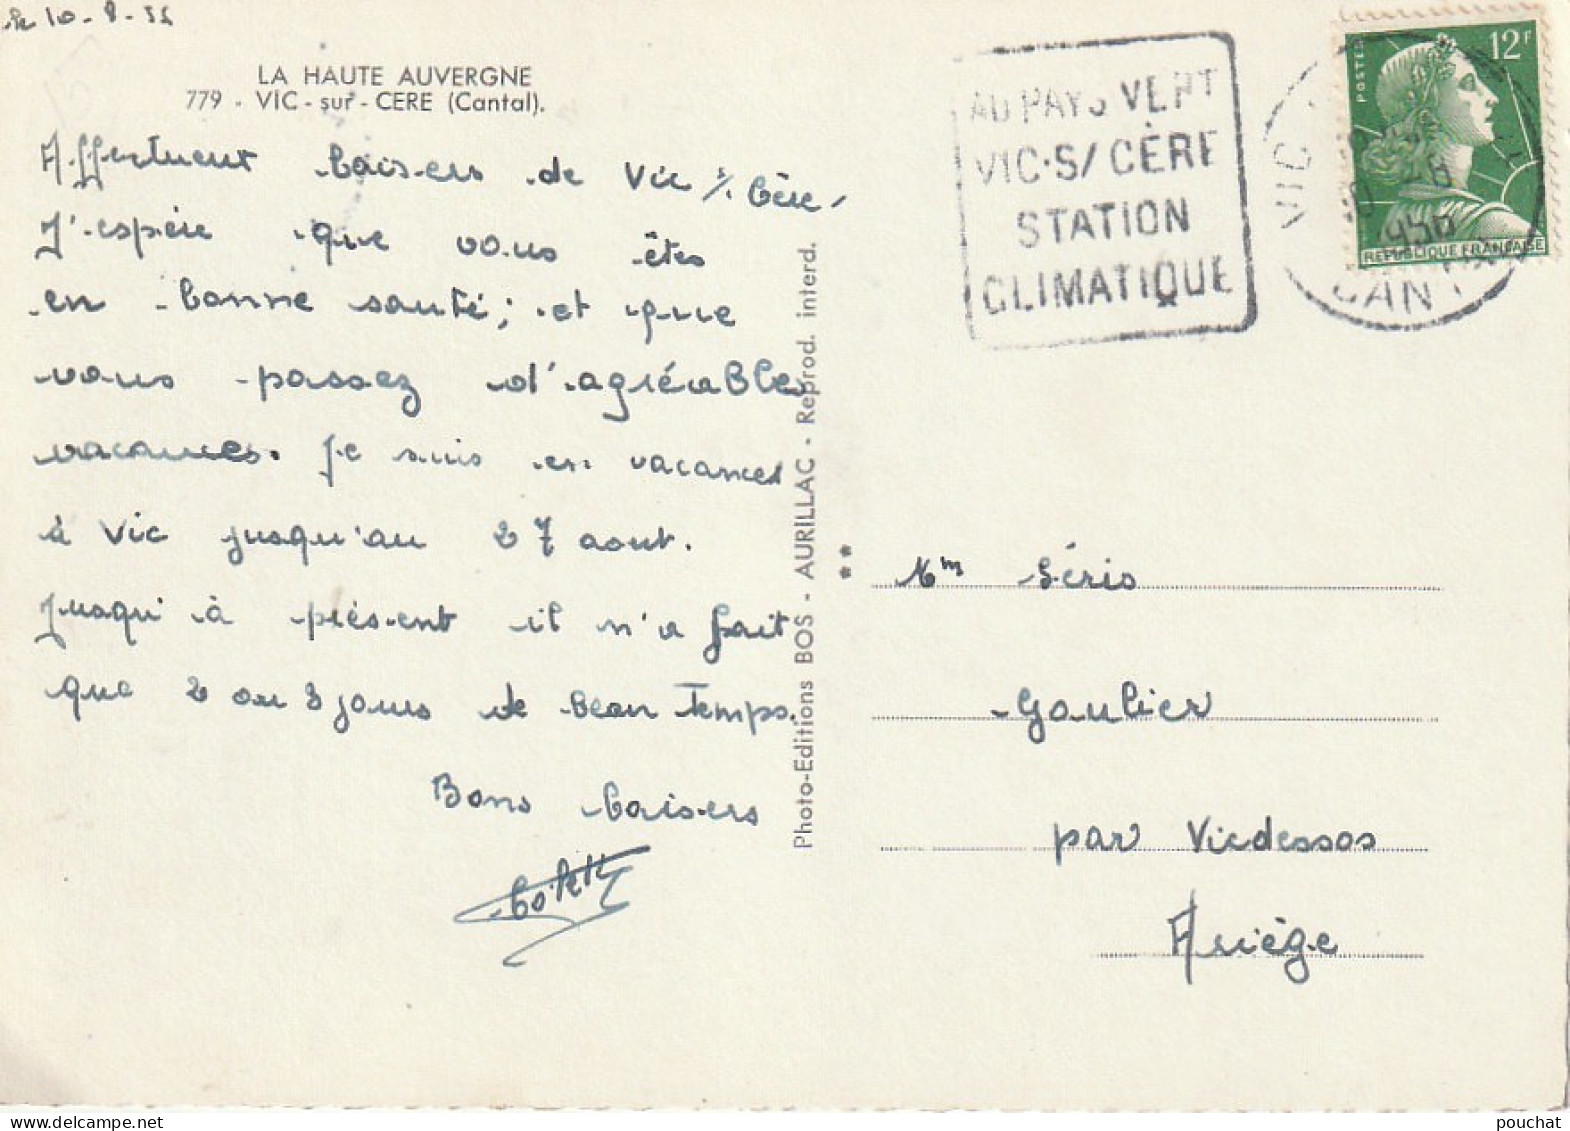 le 10-8-55
LA HAUTE AUVERGNE
779 - VIC - sur - CERE (Cantal).
Affectueux baisers de Vic s/. Cère,
J'espère que vous êtes
en bonne santé ; et que
vous passez d'agréables
vacances. Je suis en vacances
à Vic jusqu'au 27 aout.
Jusqu'à présent il n'a fait
que 2 ou 3 jours de beau temps.
Bons baisers
Colette
Photo-Editions BOS - AURILLAC - Reprod. interd.
AU PAYS VERT
VIC-S/CÈRE
STATION
CLIMATIQUE
VIC
CANT
POSTES
12F
REPUBLIQUE FRANÇAISE
Mm Séris
Goulier
par Vicdessos
Ariège
pouchat